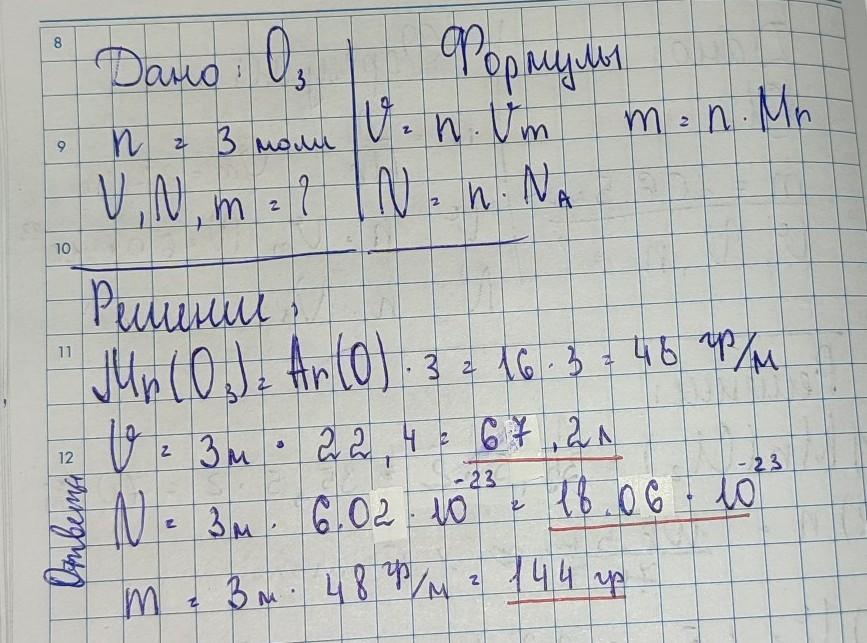 8
Дано: O₃ | Формулы
9 n = 3 моли | V = n · Vm m = n · Mr
V, N, m = ? | N = n · N_A
10
Решении:
11 Mr(O₃) = Ar(O) · 3 = 16 · 3 = 48 гр/м
12 V = 3м · 22,4 = 67,2л
N = 3м · 6.02 · 10⁻²³ = 18.06 · 10⁻²³
m = 3м · 48 гр/м = 144 гр
Ответы